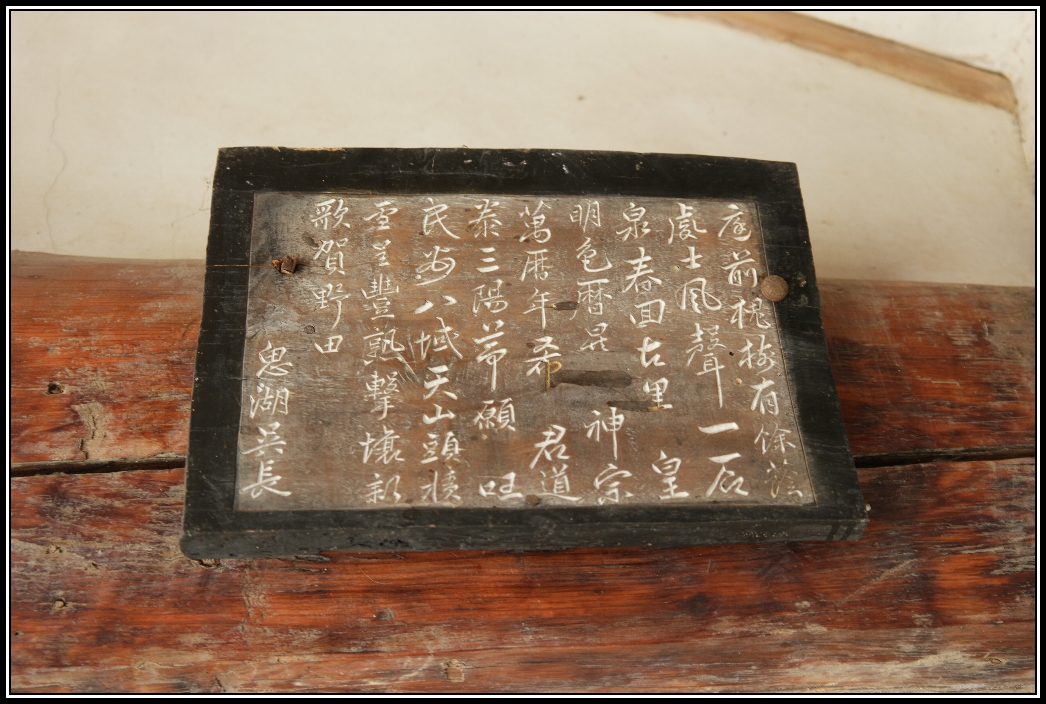 庭前槐梅有餘蔭
處士風聲一石
泉春回古里皇
明色曆是神宗
萬曆年希君道
泰三陽節願旺
民安八域天山頭積
雪呈豐熟擊壤新
歌賀野田
思湖吳長